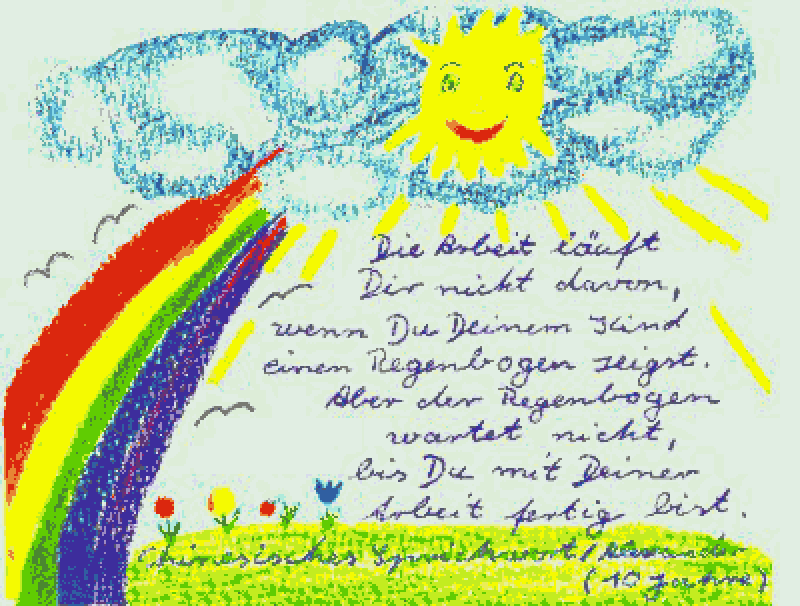 Die Arbeit läuft
Dir nicht davon,
wenn Du Deinem Kind
einen Regenbogen zeigst.
Aber der Regenbogen
wartet nicht,
bis Du mit Deiner
Arbeit fertig bist.
Chinesisches Sprichwort / Alexander
(10 Jahre)